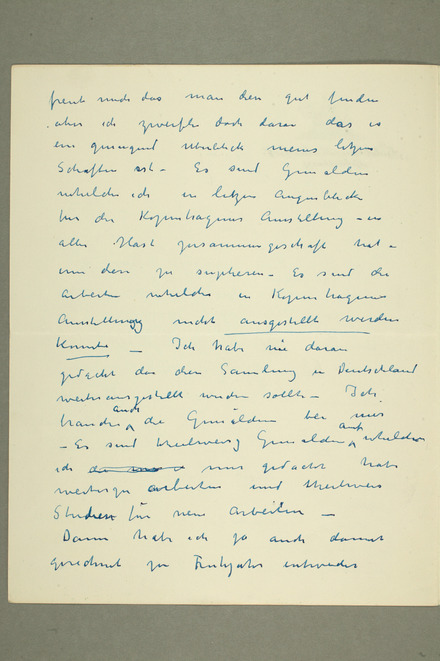 freut mich das man den gut finden
aber ich zweifle doch daran das es
ein genügend überblick meines letzen
Schaffen ist – Es sind Gemälden
welche ich in letzen Augenblick
für die Kopenhagener Ausstellung – in
aller Hast zusammengeschaft hat –
um den zu – Es sind die
Arbeiten welche in Kopenhagener
Ausstellung nicht ausgestellt werden
konnte – Ich habe nie daran
gedacht das den Samlung in Deutschland
weiterausgestellt werden sollte – Ich
brauche auch die Gemälden bei mir
– Es sind theilweise Gemälden auf welchen
ich mir gedacht habe
weiterzu arbeiten und theilweis
Studien für neue Arbeiten –
Dann habe ich ja auch damit
gerechnet zu Frühjahr entweder